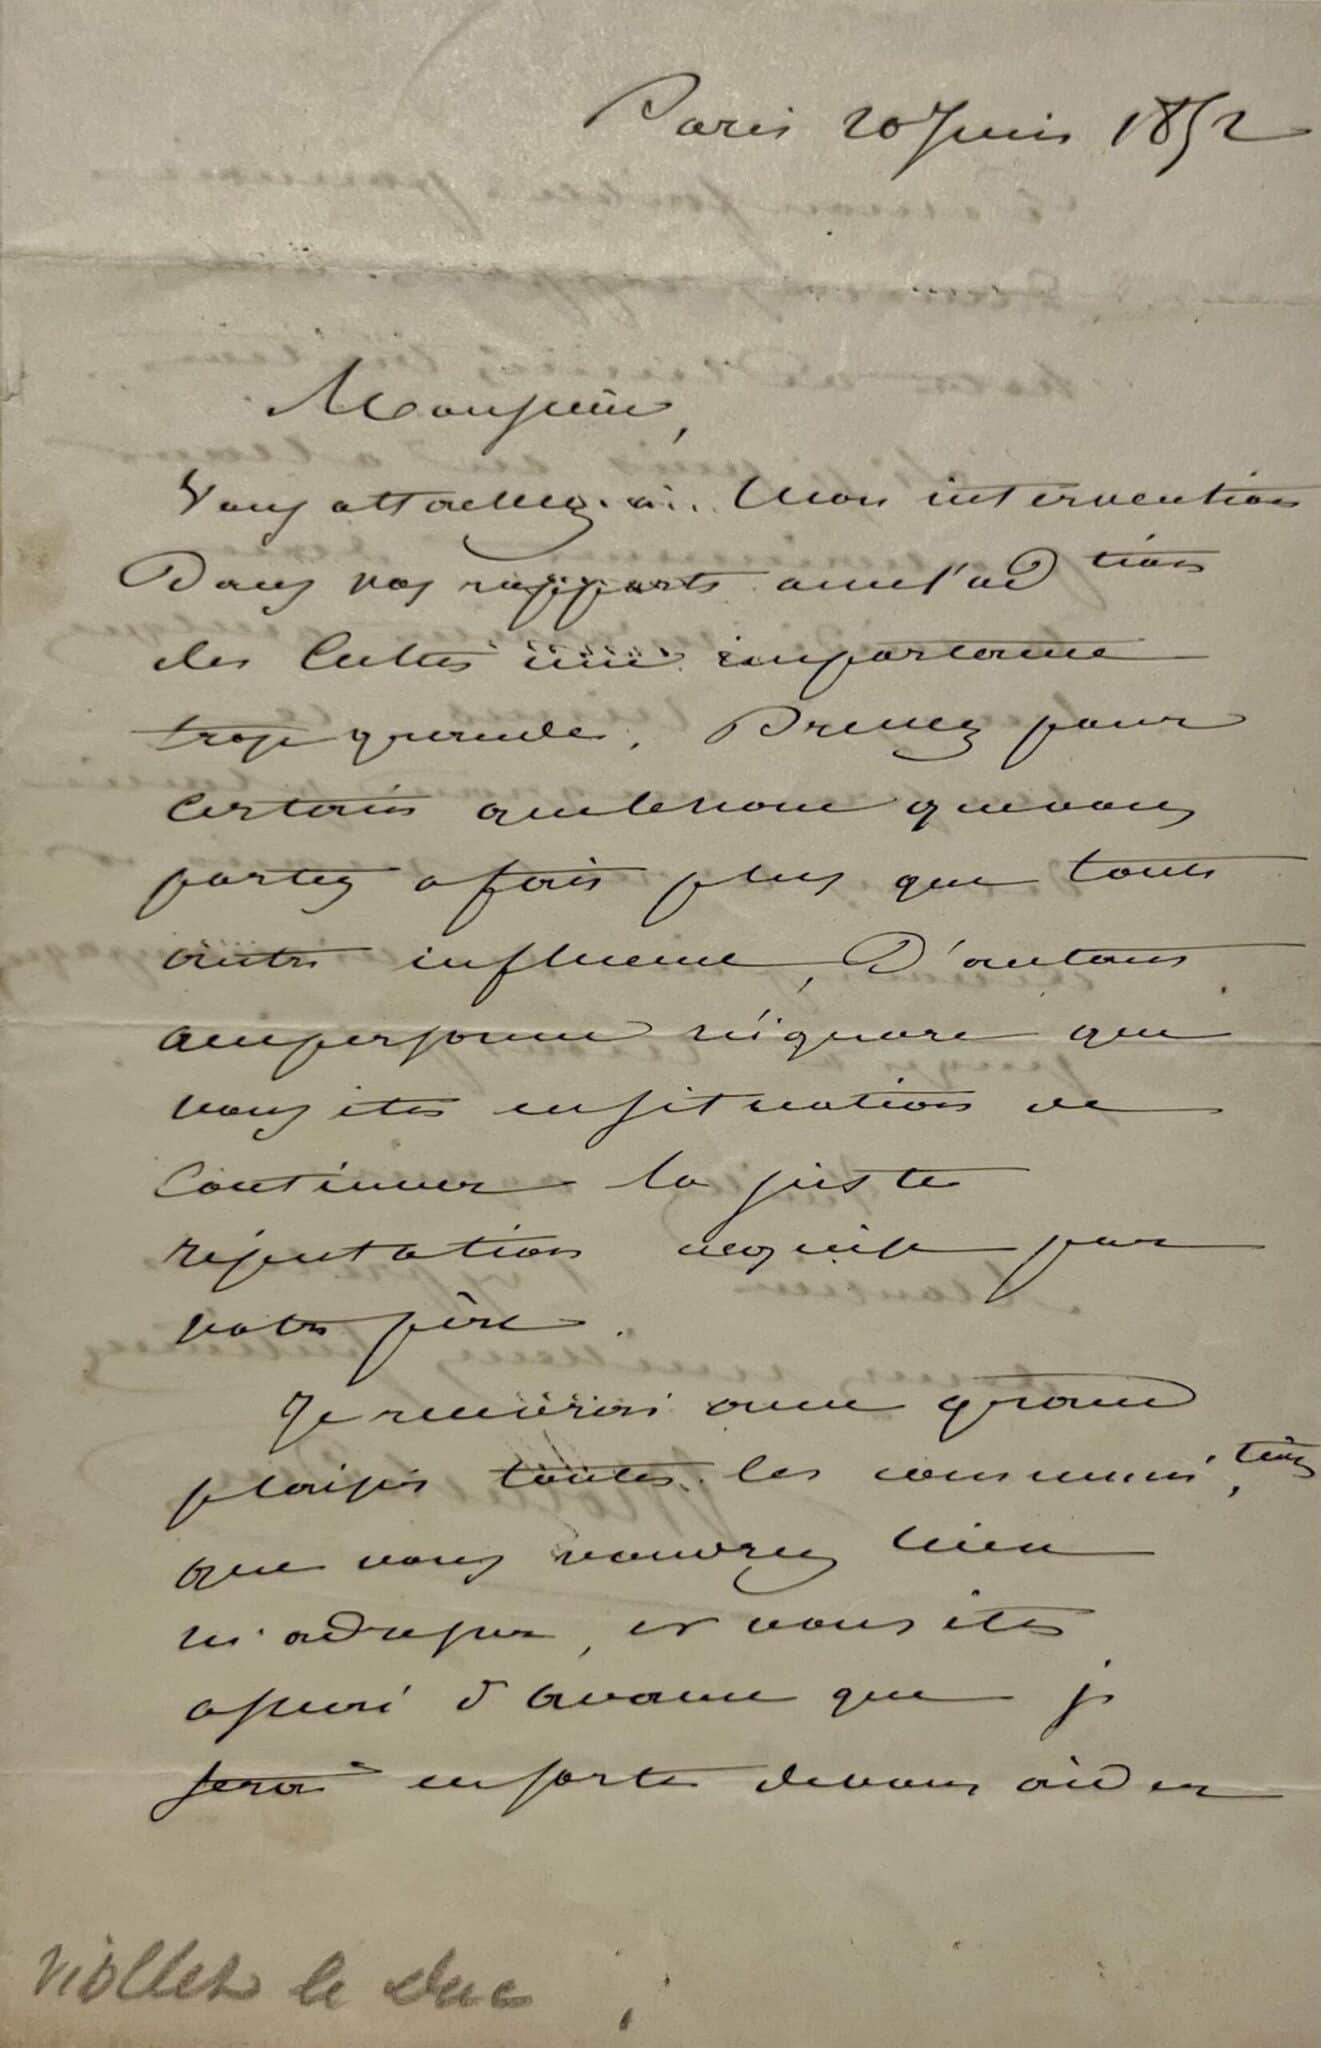 Paris 20 Juin 1852
Monsieur,
Vous attachez à mon intervention
Dans vos rapports avec l'ad tion
des Cultes une importance
trop grande. Prenez pour
certain que le nom que vous
portez a fait plus que toute
autre influence, D'autant
que personne n'ignore que
vous êtes en situation de
continuer la juste
réputation acquise par
votre père.
Je recevrai avec grand
plaisir toutes les communi.tions
que vous voudrez bien
m'adresser, et vous êtes
assuré d'avance que je
ferai en sorte de vous aider
Viollet le Duc